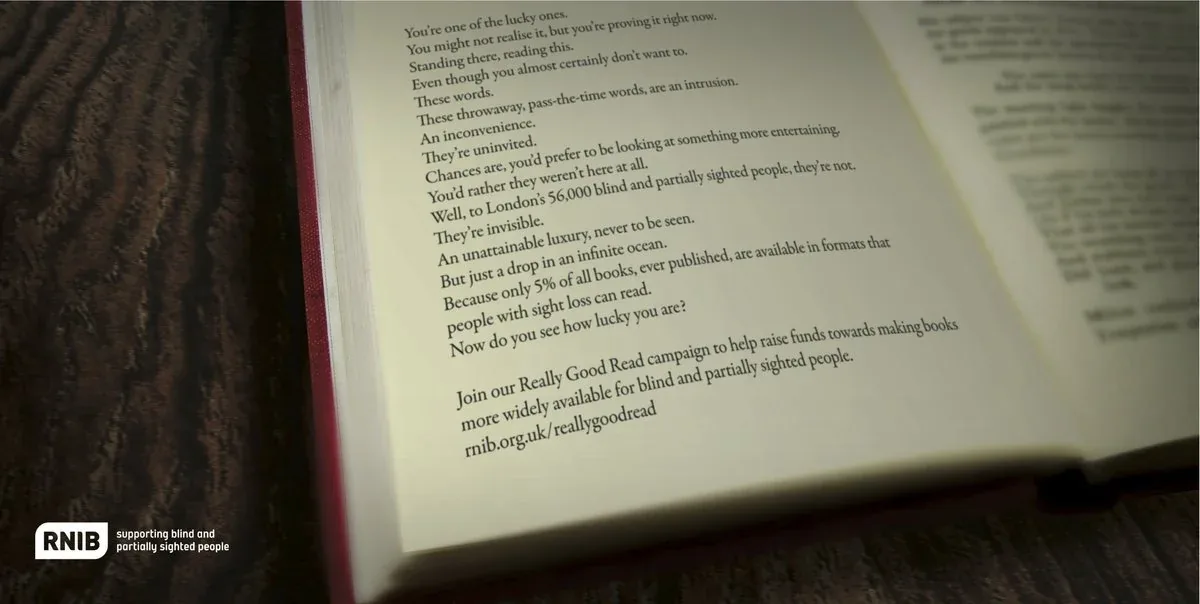 You're one of the lucky ones.
You might not realise it, but you're proving it right now.
Standing there, reading this.
Even though you almost certainly don't want to.
These words.
These throwaway, pass-the-time words, are an intrusion.
An inconvenience.
They're uninvited.
Chances are, you'd prefer to be looking at something more entertaining.
You'd rather they weren't here at all.
Well, to London's 56,000 blind and partially sighted people, they're not.
They're invisible.
An unattainable luxury, never to be seen.
But just a drop in an infinite ocean.
Because only 5% of all books, ever published, are available in formats that
people with sight loss can read.
Now do you see how lucky you are?
Join our Really Good Read campaign to help raise funds towards making books
more widely available for blind and partially sighted people.
rnib.org.uk/reallygoodread
RNIB
supporting blind and
partially sighted people